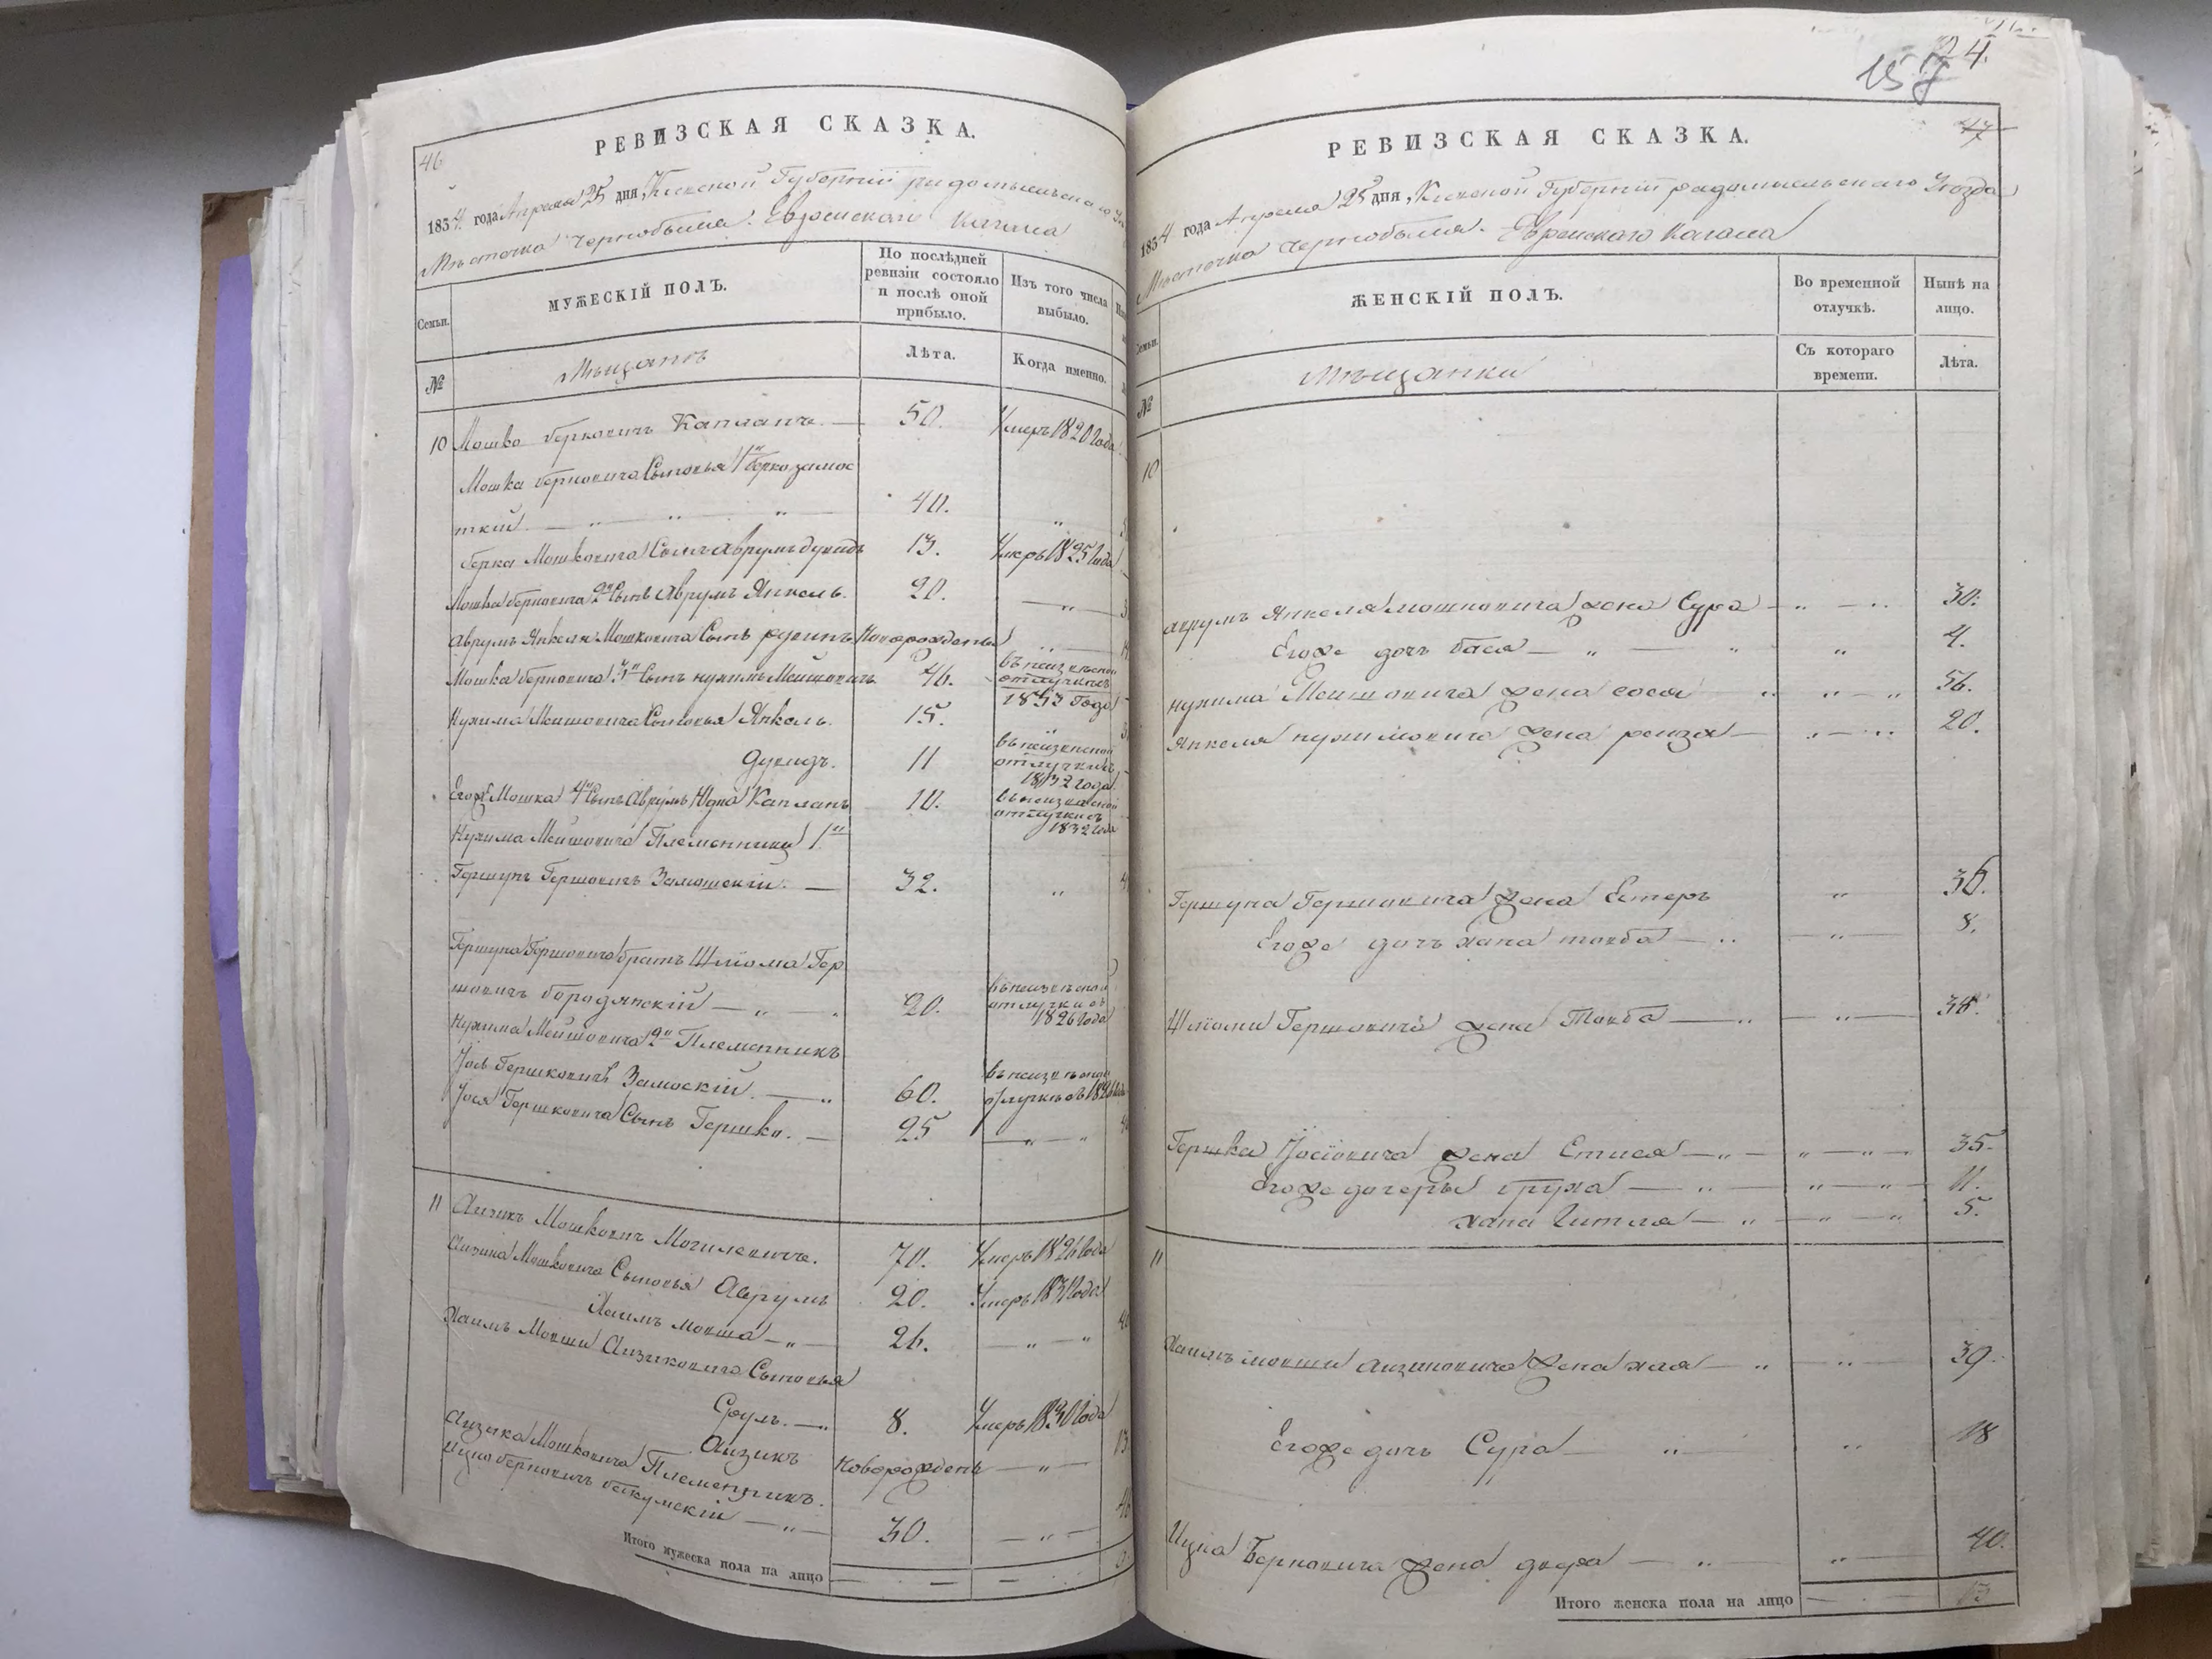 46
РЕВИЗСКАЯ СКАЗКА.
1834 года Апреля 25 дня, Киевской Губернии радомысльскаго
Мѣстечка Чернобыля. Еврейскаго Кагала
Семьи.
МУЖЕСКІЙ ПОЛЪ.
По послѣдней ревизіи состояло и послѣ оной прибыло.
Изъ того числа выбыло.
№
Мѣщанъ
Лѣта.
Когда именно.
10 Мошко берковичъ Капланъ. — 50. Умеръ 1820 Года
Мошка берковича Сыновья 1й берко замос
ткій — " — " — " 40. "
берка Мошковича Сынъ аврумъ дувидъ 13. Умеръ 1825 Года
Мошка берковича 2й Сынъ аврумъ Янкель. 20. — " —
аврумъ Янкеля Мошковича Сынъ рувинъ Новорожденъ "
Мошка берковича 3й Сынъ нухимъ Мошковичъ 46. въ неизвѣсной отлучкѣ съ 1833 Года
Нухима Мошковича Сыновья Янкель. 15. "
дувидъ. 11 въ неизвѣсной отлучкѣ съ 1832 года
Егоже Мошка 4й Сынъ Аврумъ Юдка Капланъ 10. въ неизвѣсной отлучкѣ съ 1832 года
Нухима Мошковича Племянники 1й
Гершунъ Гершковичъ Замошскій. — 32. "
Гершуна Гершковича братъ Шліома Гер
шковичъ бородянскій — " — 20. въ неизвѣсной отлучкѣ съ 1826 Года
Нухима Мошковича 2й Племянникъ
Іось Гершковичъ Замоскій. — " 60. въ неизвѣсной отлучкѣ съ 1826
Іося Гершковича Сынъ Гершко. — 25 — " — "
11 Аизикъ Мошковичъ Могилевичъ. 70. Умеръ 1826 Года
Аизика Мошковича Сыновья Аврумъ 20. Умеръ 1831 Года
Хаимъ мовша — " — 26. — " — "
Хаимъ Мовши Аизиковича Сыновья
Сруль. — " 8. Умеръ 1830 Года
Аизикъ Новорожденъ — " —
Аизика Мошковича Племянникъ.
Ицко берковичъ — " — 30. — " —
Итого мужеска пола на лицо
157
24.
47
РЕВИЗСКАЯ СКАЗКА.
1834 года Апреля 25 дня, Киевской Губерніи радомысльскаго Уезда
Мѣстечка Чернобыля. Еврейскаго Кагала
Семьи.
ЖЕНСКІЙ ПОЛЪ.
Во временной отлучкѣ.
Нынѣ на лицо.
№
Мѣщанки
Съ котораго времени.
Лѣта.
10
аврумъ Янкеля мошковича жена Сура — " — " 30.
Егоже дочь бася — " — " " 4.
нухима Мошковича жена сося " " — " 56.
Янкеля нухимовича жена рейзя — " — " 20.
Гершуна Гершковича жена Естеръ " 36.
Егоже дочь хана товба — " — " — 8.
Шліоми Гершковича жена Товба — " — " — 38.
Гершка Іосіовича жена Стися — " — " — " — 35.
Егоже дочеры бруха — " — " — " — 11.
хана Гитля — " — " — " 5.
11
Хаимъ мовши аизиковича жена хая — " — " — 39.
Егоже дочь Сура — " — " 18
Ицка Берковича жена двера — " — " — 40.
Итого женска пола на лицо — 13